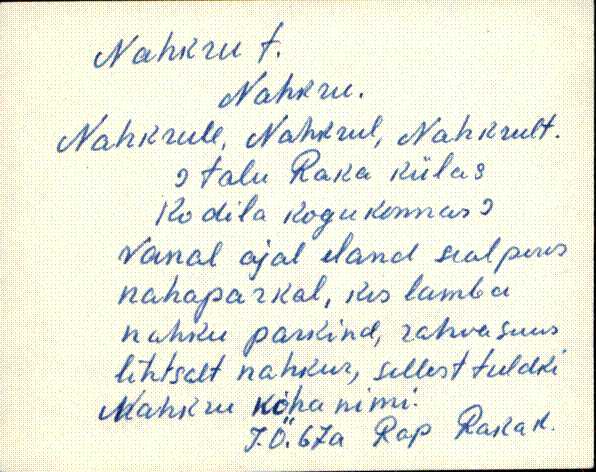 Nahkru t.
Nahkru.
Nahkrule, Nahkrul, Nahkrult.
talu Raka külas
Kodila kogukonnas
Vanal ajal eland sealperes
nahaparkal, kes lamba
nahku parkind, rahvasuus
lihtsalt nahkur, sellest tuldki
Nahkru koha nimi.
J.Ö. 67a Rap Raka k.